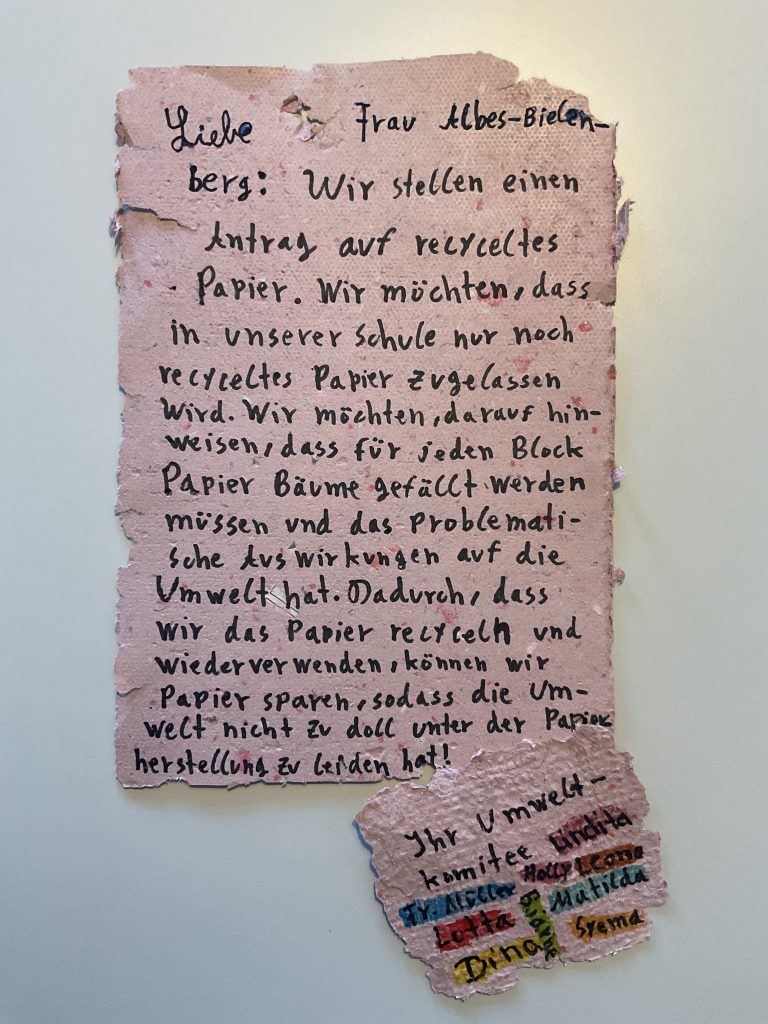 Liebe Frau Albes-Bielen-
berg: Wir stellen einen
Antrag auf recyceltes
Papier. Wir möchten, dass
in unserer Schule nur noch
recyceltes Papier zugelassen
wird. Wir möchten, darauf hin-
weisen, dass für jeden Block
Papier Bäume gefällt werden
müssen und das problemati-
sche Auswirkungen auf die
Umwelt hat. Dadurch, dass
wir das Papier recyceln und
wiederverwenden, können wir
Papier sparen, sodass die Um-
welt nicht zu doll unter der Papier
herstellung zu leiden hat!
Ihr Umwelt-
komitee Lindita
Holly Leona
Fr. Müller Matilda
Lotta Syema
Dina